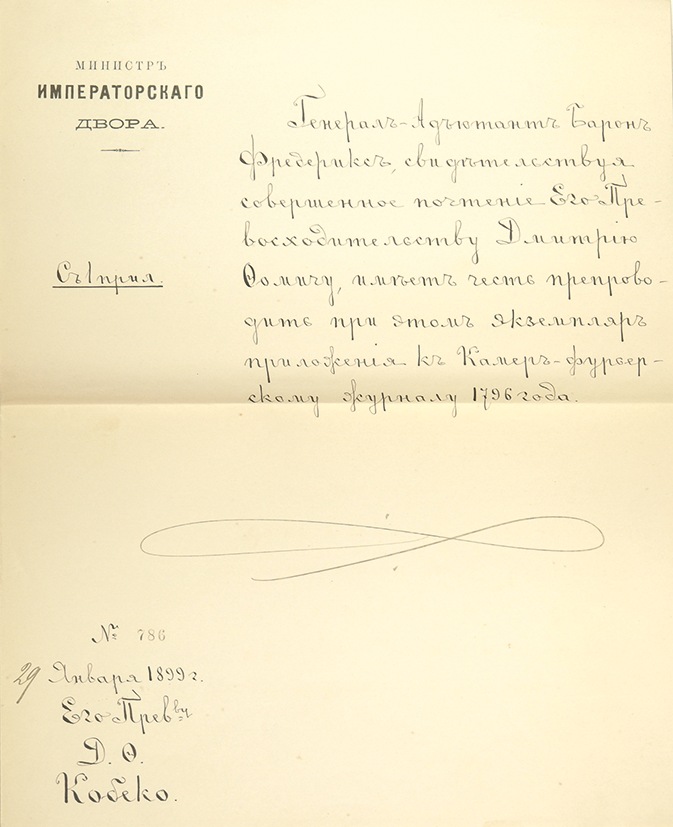 МИНИСТРЪ
ИМПЕРАТОРСКАГО
ДВОРА.
Генералъ-Адъютантъ Баронъ
Фредериксъ, свидѣтельствуя
совершенное почтеніе Его Пре-
восходительству Дмитрію
Ѳомичу, имѣетъ честь препрово-
дить при этомъ экземпляръ
приложенія къ Камеръ-фурьер-
скому журналу 1796 года.
Съ 1 прил.
№ 786
29 Января 1899 г.
Его Прев-ву
Д. Ѳ.
Кобеко.